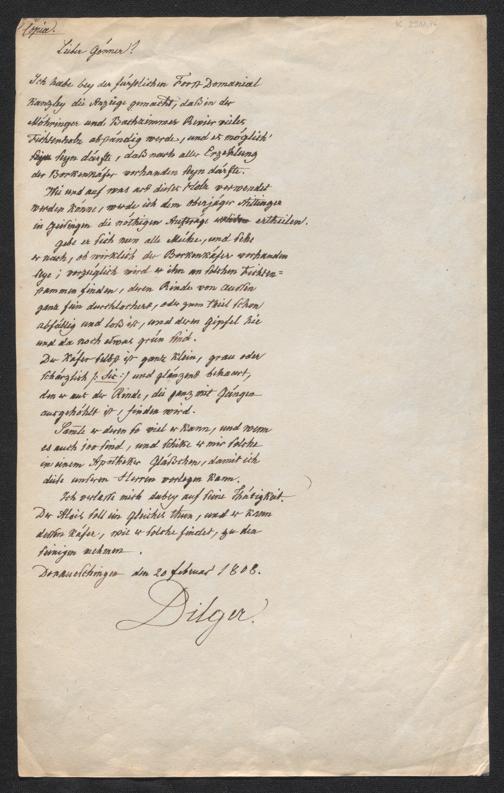 Copia.
Lieber Gönner!
Ich habe bey der fürstlichen Forst Domanial
Kanzley die Anzüge gemacht, daß in der
Möhringer und Bachzimmer Revier vieles
Fichtenholz abständig werde, und es möglich
seyn dürfte, daß nach aller Erzehlung
der Borkenkäfer vorhanden seyn dürfte.
Wie und auf was art dieses Holz verwendet
werden könne, werde ich dem oberjäger
in Geisingen die nöthigen Aufträge ertheilen.
Gebe er sich nun alle Mühe, und sehe
er nach, ob wirklich der Borkenkäfer vorhanden
seye; vorzüglich wird er ihn an solchen Fichten=
stammen finden, deren Rinde von aussen
ganz fein durchlöchert, oder zum theil schon
abfällig und loß ist, und deren gipfel hie
und da noch etwas grün sind.
Der Käfer selbst ist ganz klein, grau oder
schärzlich /: Sic :/ und glänzend behaart,
den er aus der Rinde, die ganz mit Gängen
ausgehöhlt ist, finden wird.
Samle er deren so viel er kann, und wenn
es auch 100 sind, und schike er mir solche
in einem Apotheker Gläßchen, damit ich
diese unseren Herren vorlegen kann.
Ich verlasse mich dabey auf seine Thätigkeit.
Der Alois soll ein gleiches thun, und er kann
dessen Käfer, wie er solche findet, zu den
seinigen nehmen.
Donaueschingen den 20 februar 1808.
Dilger.